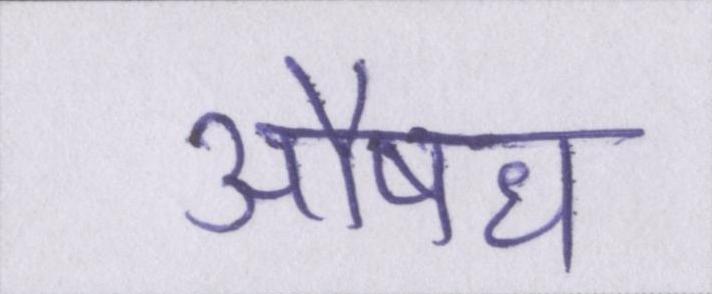 औषध